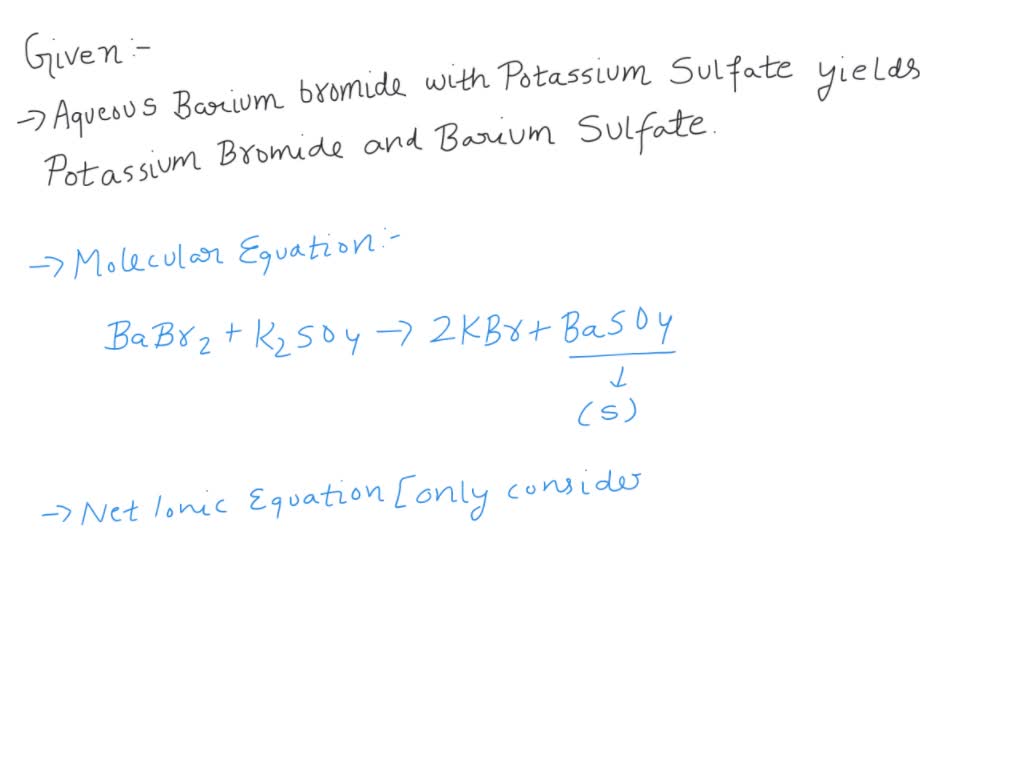 Given:-
→ Aqueous Barium bromide with Potassium Sulfate yields
Potassium Bromide and Barium Sulfate.
→ Molecular Equation:-
BaBr₂ + K₂SO₄ → 2KBr + BaSO₄
↓
(s)
→ Net Ionic Equation [only consider